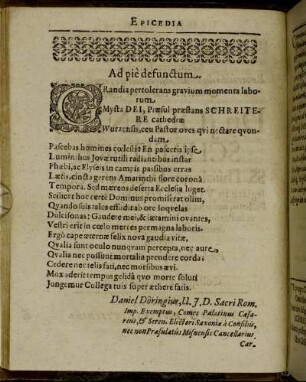 EPICEDIA
Ad piè defunctum.
GRandia pertolerans gravium momenta labo-
rum.
Mysta DEI, Præsul præstans SCHREITE-
RE cathedræ
Wurzensis, ceu Pastor oves qvi nectare qvon-
dam.
Pascebas homines cœlesti: En pasceris ipse
Luminibus Jovæ rutili radiantibus instar
Phœbi, ac Elyseis in campis passibus erras
Lætis, cincta gerens Amarinthi flore coronâ
Tempora. Sed mærens deserta Ecclesia luget.
Scilicet hoc certè Dominus promiserat olim,
Quando suis tales effudit ab ore loqvelas
Dulcisonas; Gaudete mei, & lætamini ovantes,
Vestri eric in cœlo merces permagna laboris.
Ergò cape æternæ felix nova gaudia vitæ,
Qvalia sunt oculo nunqvam percepta, nec aure
Qvalia nec possunt mortalia prendere corda:
Cedere nec telis fati, nec morsibus ævi.
Mox aderit tempus gelidâ qvo morte soluti
Jungemur Collega tuis super æthere fatis.
Daniel Döringius, U. J. D. Sacri Rom.
Imp. Exemptus, Comes Palatinus Cæsa-
reus, & Seren. Electori Saxoniæ à Consiliis,
nec non Præsulatus Misnensis Cancellarius.
Car-